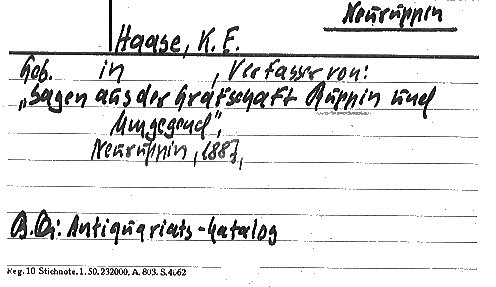 Neuruppin
Haase, K. E.
Geb. in , Verfasser von:
„Sagen aus der Grafschaft Ruppin und
Umgegend",
Neuruppin, 1887,
Antiquariats-Katalog
Reg. 10 Stichnote. 1. 50. 232000. A. 803. S. 4062